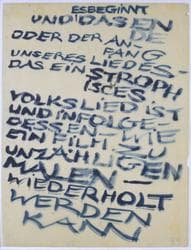 ES BEGINNT
UND DAS EN
DE
ODER DER AN-
FANG
UNSERES LIEDES-
DAS EIN STROPH
ISCES
VOLKSLIED IST
UND INFOLGE-
DESSEN-WIE
EIN FILM-ZU
UNZÄHLIGEN
MALEN-
WIEDERHOLT
WERDEN
KANN